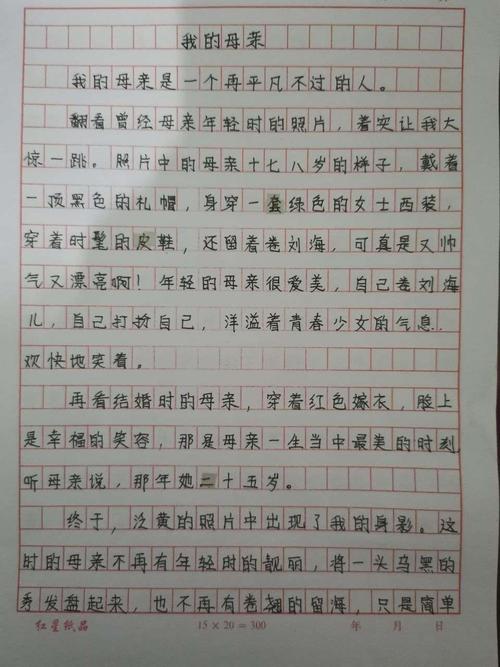 我的母亲
我的母亲是一个再平凡不过的人。
翻看曾经母亲年轻时的照片，着实让我大
惊一跳。照片中的母亲十七八岁的样子，戴着
一顶黑色的礼帽，身穿一套绿色的女士西装，
穿着时髦的皮鞋，还留着卷刘海，可真是又帅
气又漂亮啊！年轻的母亲很爱美，自己卷刘海
儿，自己打扮自己，洋溢着青春少女的气息，
欢快地笑着。
再看结婚时的母亲，穿着红色嫁衣，脸上
是幸福的笑容，那是母亲一生当中最美的时刻
听母亲说，那年她二十五岁。
终于，泛黄的照片中出现了我的身影。这
时的母亲不再有年轻时的靓丽，将一头乌黑的
秀发盘起来，也不再有卷翘的留海，只是简单
红星纸品 15×20=300 年 月 日